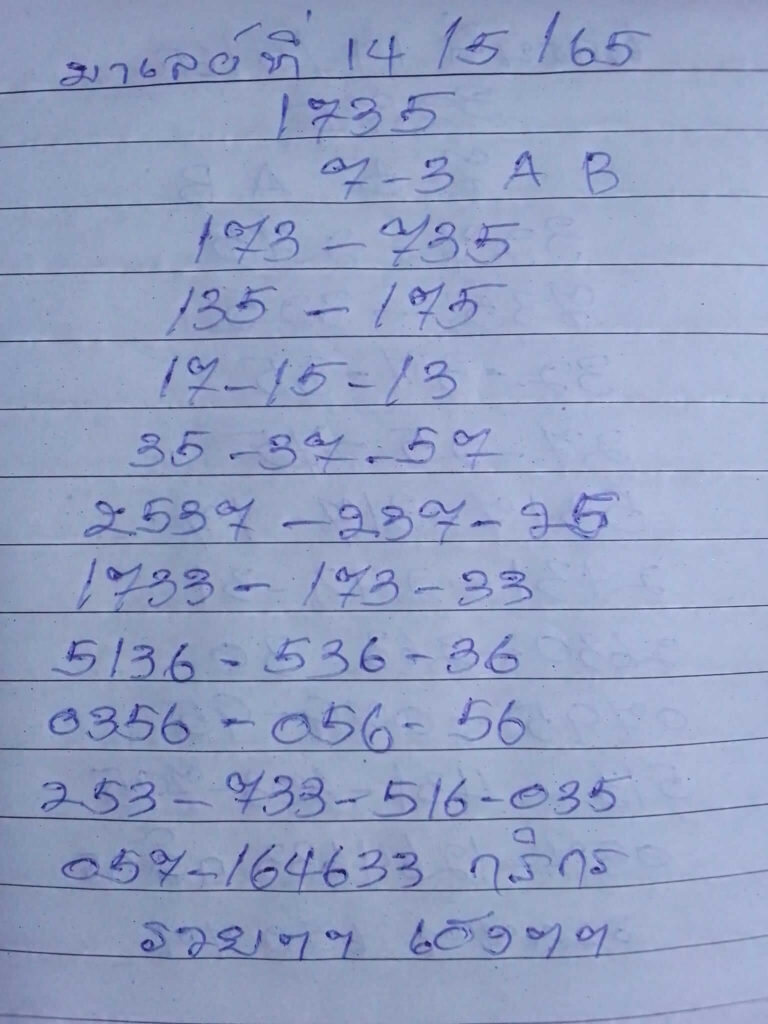 มาเลย์ที่ 14/5/65
1735
7-3 A B
173-735
135-175
17-15-13
35-37-57
2537-237-25
1733-173-33
5136-536-36
0356-056-56
253-733-516-035
057-164633
รวยๆๆ เฮงๆๆ